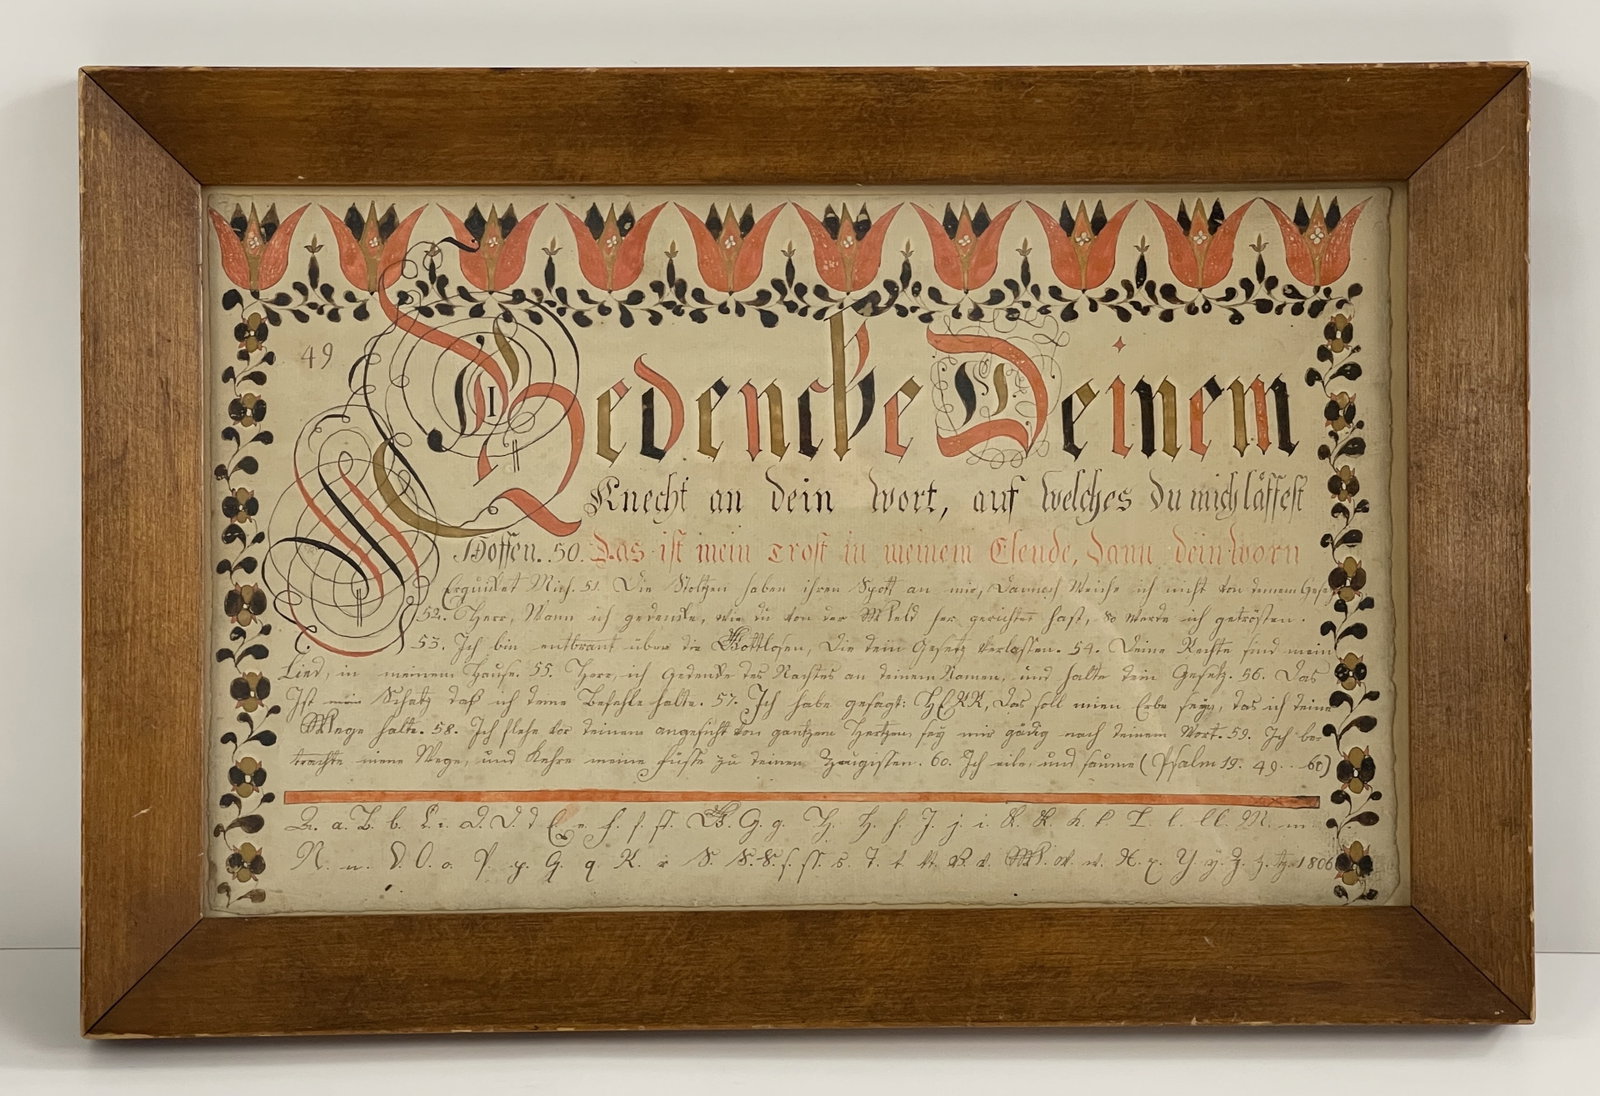 49 Gedencke Deinem
Knecht an dein Wort, auf welches du mich lässest
Hoffen. 50. Das ist mein Trost in meinem Elende, dann dein worn
Erquicket Mich. 51. Die Stoltzen haben ihren Spott an mir, Dannoch Weiche ich nicht von deinem Gesetz
52. Herr, Wann ich gedencke, wie du von der Welt her gerichtet hast, so werde ich getrösten.
53. Ich bin entbrant über die Gottlosen, Die dein Gesetz Verlassen. 54. Deine Rechte sind mein
Lied, in meinem Hause. 55. Herr, ich Gedencke des Nachtes an deinem Namen, und halte dein Gesetz. 56. Das
Ist mein Schatz daß ich deine Befehle halte. 57. Ich habe gesagt: HERR, das soll mien Erbe seyn, das ich deine
Wege halte. 58. Ich flehe vor deinem angesicht von gantzem Hertzen, sey mir gnädig nach deinem Wort. 59. Ich be-
trachte meine Wege, und Kehre meine füsse zu deinen Zeugissen. 60. Ich eile, und säume (Psalm 19. 49.. 60)
A. a. B. b. C. c. D. D. d E e f. f. ff. G. G. g. H. H. h. J. j. i. K. K. k. k. L l. ll. M. m.
N. n. O. O. o P p. Q. q R. r S. S. S. s. ss. s. T. t tt. V. v. W. W. w. X. x. Y y. Z. z. tz. 1806